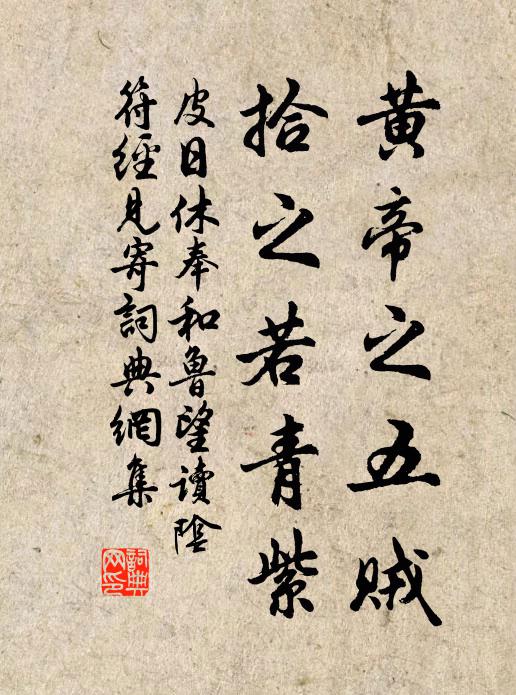 黄帝之五贼
拾之若青紫
皮日休奉和鲁望读阴
符经见寄词典网集
词典网印